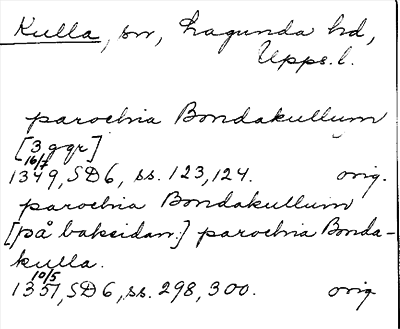 Kulla, sn, Lagunda hd,
Upps. l.
parochia Bondakullum
[3 ggr]
16/7
1349, SD6, ss. 123, 124. orig.
parochia Bondakullum
[på baksidan:] parochia Bonda-
kulla.
10/5
1351, SD6, ss. 298, 300. orig